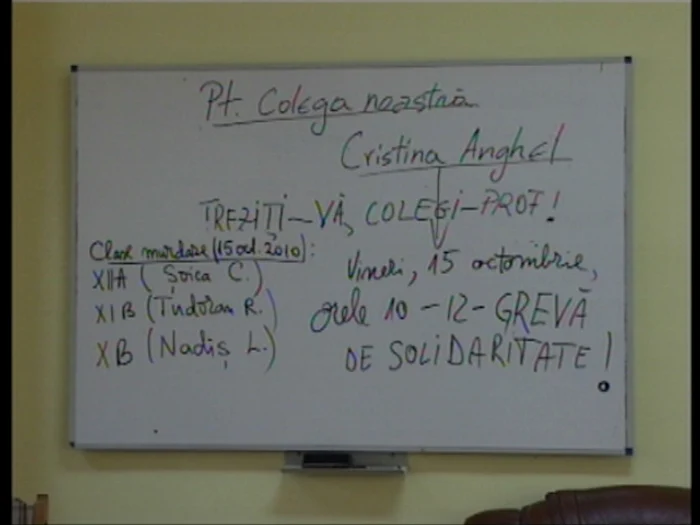 Pt. Colega noastră
Cristina Anghel
TREZIȚI-VĂ, COLEGI-PROF!
Clase murdare (15 oct. 2010):
XIIA (Șoica C.)
XIB (Tudoran R.)
XB (Nadiș L.)
Vineri, 15 octombrie,
orele 10-12-GREVĂ
DE SOLIDARITATE!